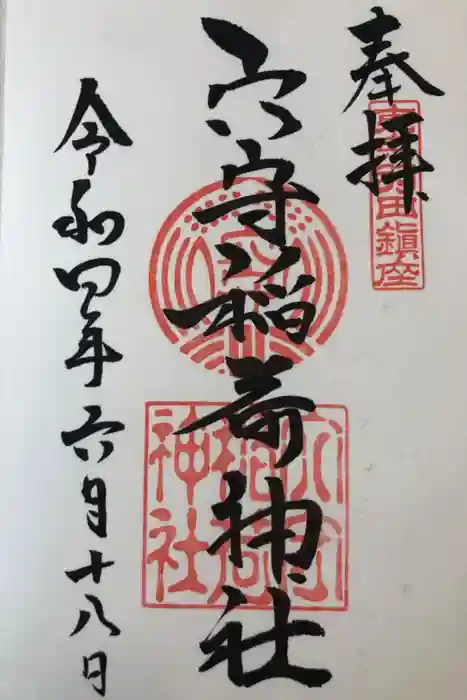 奉拝
東京羽田鎮座
穴守稲荷神社
穴守稲荷神社
令和四年六月十八日